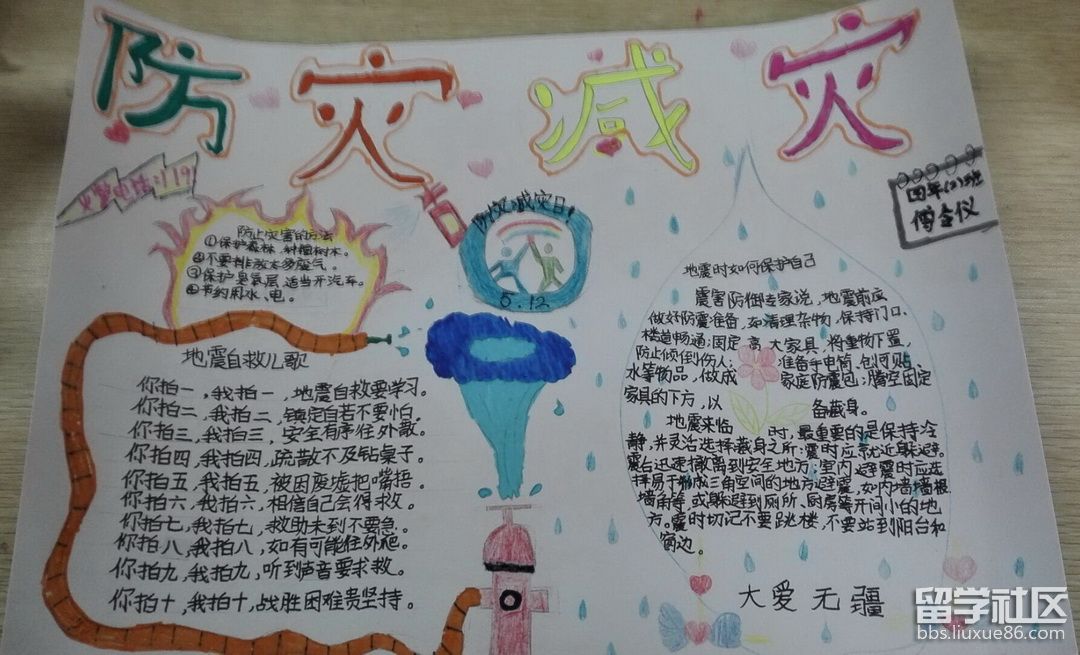 防灾减灾
火警电话:119
四年(2)班
傅全仪
防灾减灾日!
5.12
防止灾害的方法
①保护森林,种植树木。
②不要排放太多废气。
③保护臭氧层,适当开汽车。
④节约用水、电。
地震自救儿歌
你拍一,我拍一,地震自救要学习。
你拍二,我拍二,镇定自若不要怕。
你拍三,我拍三,安全有序往外散。
你拍四,我拍四,疏散不及钻桌子。
你拍五,我拍五,被困废墟把嘴捂。
你拍六,我拍六,相信自己会得救。
你拍七,我拍七,救助未到不要急。
你拍八,我拍八,如有可能往外爬。
你拍九,我拍九,听到声音要求救。
你拍十,我拍十,战胜困难贵坚持。
地震时如何保护自己
震害防御专家说,地震前应
做好防震准备,如清理杂物,保持门口、
楼道畅通;固定高大家具,将重物下置,
防止倾倒伤人;准备手电筒、创可贴、
水等物品,做成家庭防震包;腾空固定
家具的下方,以备藏身。
地震来临时,最重要的是保持冷
静,并灵活选择藏身之所:震时应就近躲避,
震后迅速撤离到安全地方;室内避震时应选
择易于形成三角空间的地方避震,如内墙墙根、
墙角等,或躲避到厕所、厨房等开间小的地
方。震时切记不要跳楼,不要站到阳台和
窗边。
大爱无疆
留学社区
bbs.liuxue86.com